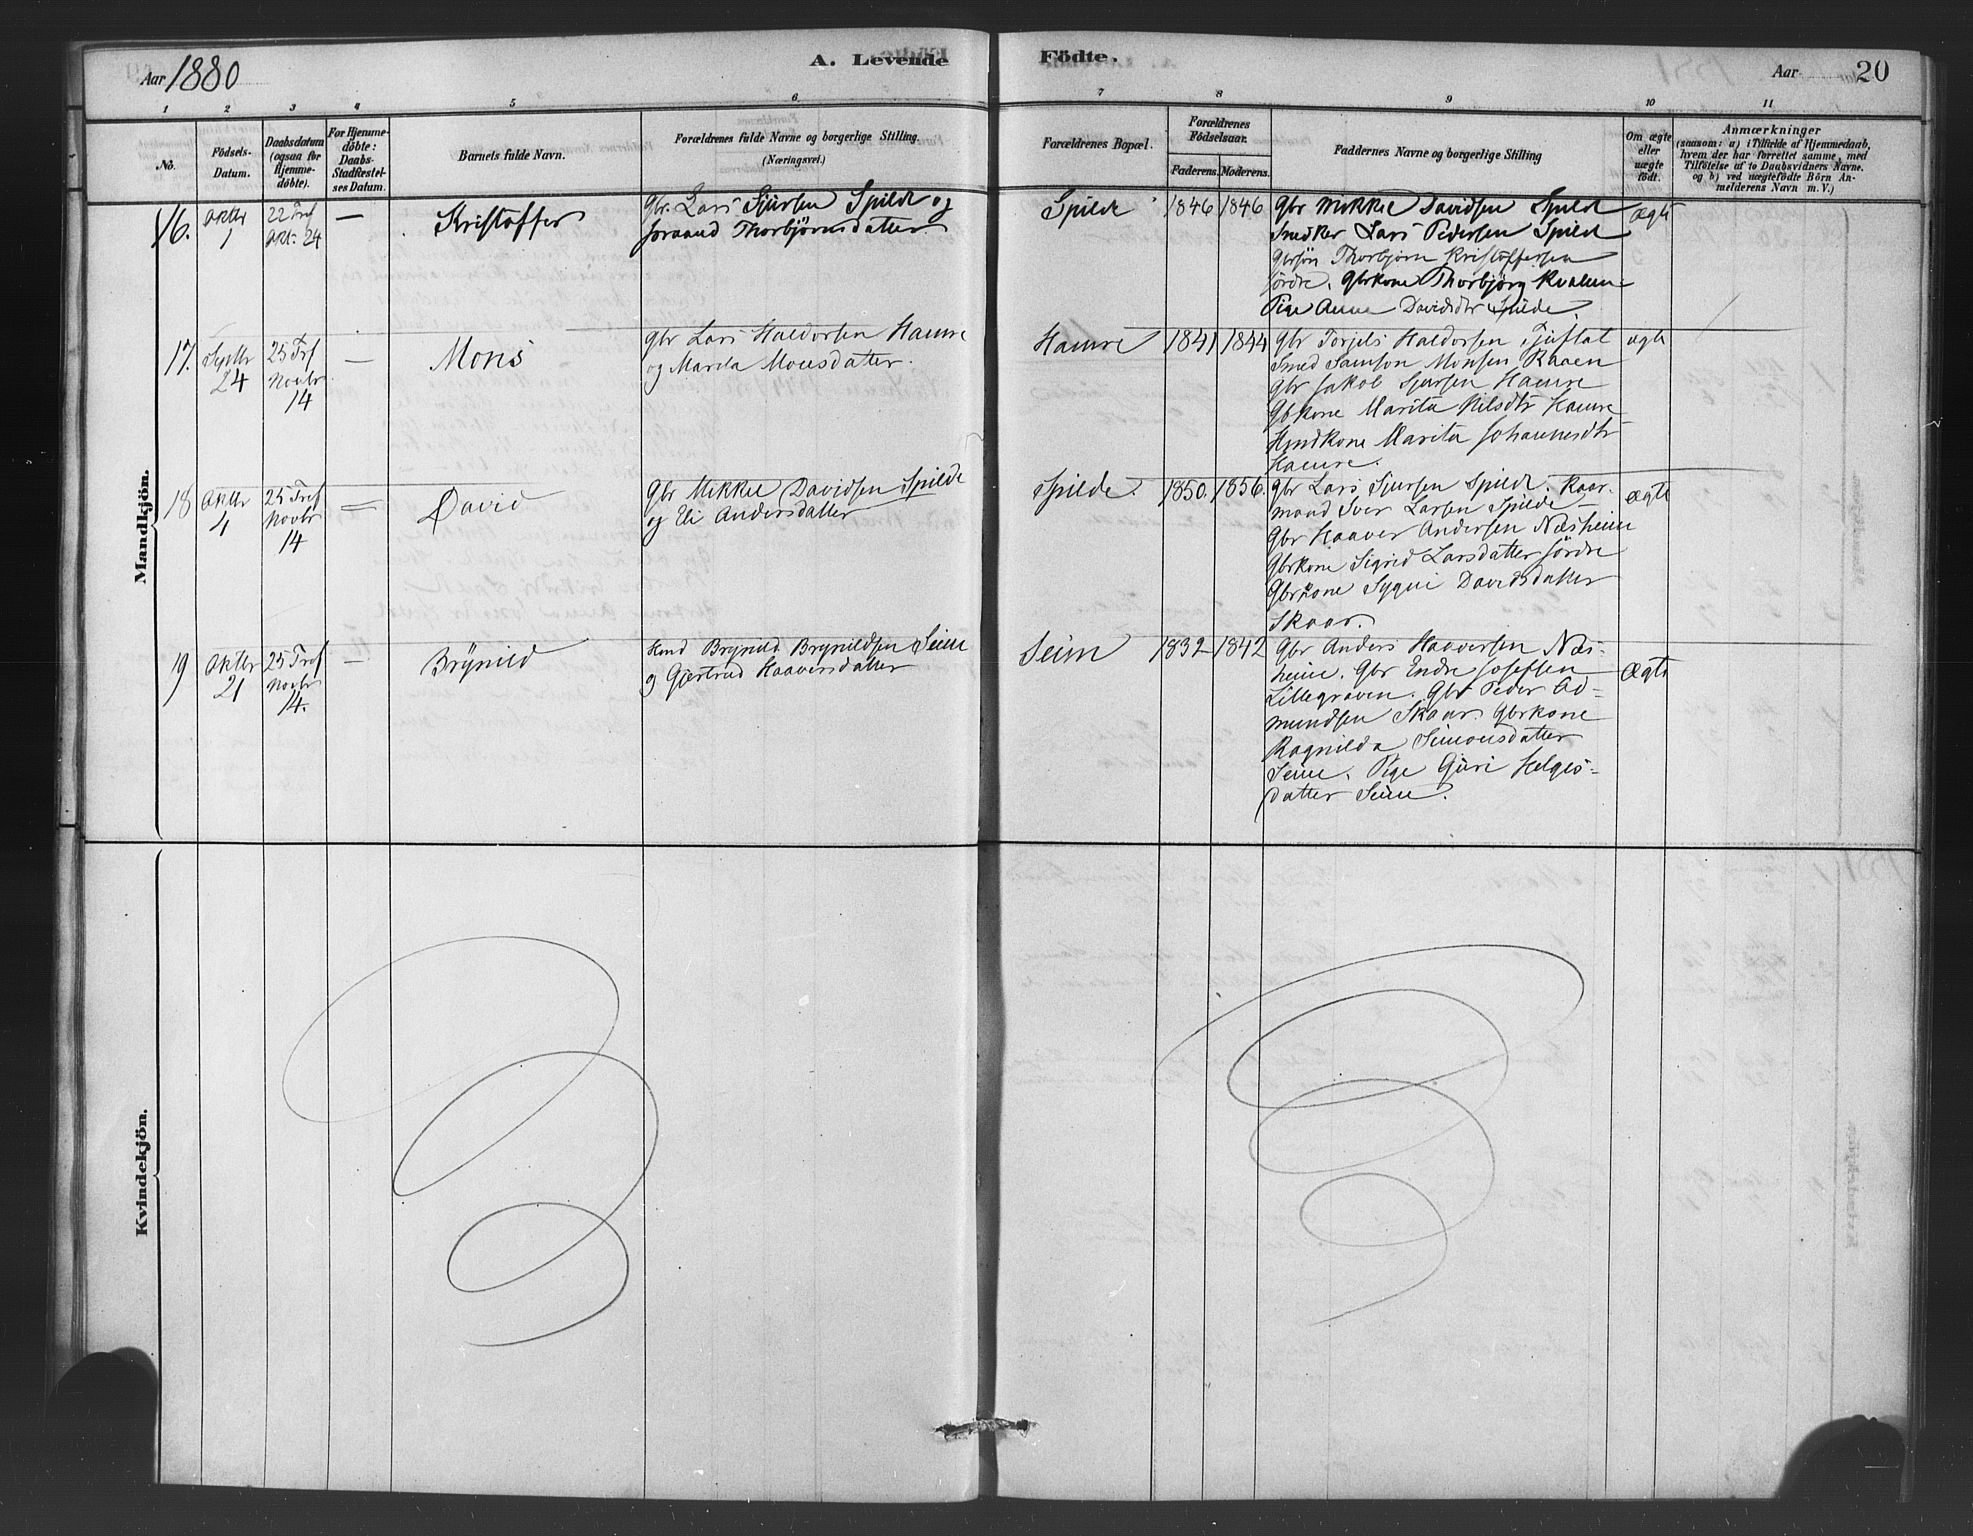 Aar 1880
A. Levende Födte.
Aar 20
1 2 3 4 5 6 7 8 9 10 11
No.
Födsels-
Datum.
Daabsdatum
(ogsaa for
Hjemme-
döbte).
For Hjemme-
döbte:
Daabs-
Stadfæstel-
ses Datum.
Barnets fulde Navn.
Forældrenes fulde Navne og borgerlige Stilling.
(Næringsvei.)
Forældrenes Bopæl.
Forældrenes
Födselsaar.
Faderens. Moderens.
Faddernes Navne og borgerlige Stilling
Om ægte
eller
uægte
födt.
Anmærkninger
(saasom: a) i Tilfælde af Hjemmedaab,
hvem der har forrettet samme, med
Tilföielse af to Daabsvidners Navne.
og b) ved uægtefödte Börn An-
melderens Navn m. V.)
Mandkjön.
16.
Oktbr
1
22 Tref
Okt. 24
—
Kristoffer
Gbr. Lars Sjursen Spilde og
Joraand Thorbjörnsdatter
Spilde
1846 1846
Gbr Mikkel Davidsen Spilde
Snedker Lars Pedersen Spilde
Gbrsön Thorbjörn Kristoffersen
Jördre. Gbrkone Thorbjörg Kvalem
Pige Anna Davidsdtr Spilde.
ægte
17.
Septbr
24
25 Tref
Novbr
14
—
Mons
Gbr Lars Haldorsen Hamre
og Marita Monsdatter.
Hamre
1841 1844
Gbr Torjels Haldorsen Tjuflat
Smed Samson Monsen Raaen
Gbr Jakob Sjursen Hamre
Gbkone Marita Nilsdtr Hamre
Hmdkone Marita Johannesdtr
Hamre.
ægte
18
Oktbr
4
25 Tref
Novbr
14
—
David
Gbr Mikkel Davidsen Spilde
og Eli Andersdatter
Spilde.
1850. 1856.
Gbr Lars Sjursen Spilde. Kaar-
mand Iver Larsen Spilde
Gbr Haaver Andersen Næsheim
Gbrkone Sigrid Larsdatter Jördre
Gbrkone Sygni Davidsdatter
Skaar.
ægte
19
Oktbr
21
25 Tref
Novbr
14.
—
Brynild
Hmd Brynild Brynildsen Seim
og Gjertrud Haaversdatter
Seim
1832 1842
Gbr Anders Haaversen Næs-
heim. Gbr Endre Josefsen
Lillegraven. Gbr Peder Ad-
mundsen Skaar. Gbrkone
Ragnilda Simonsdatter
Seim. Pige Guri Helges-
datter Seim.
Ægte
Kvindekjön.